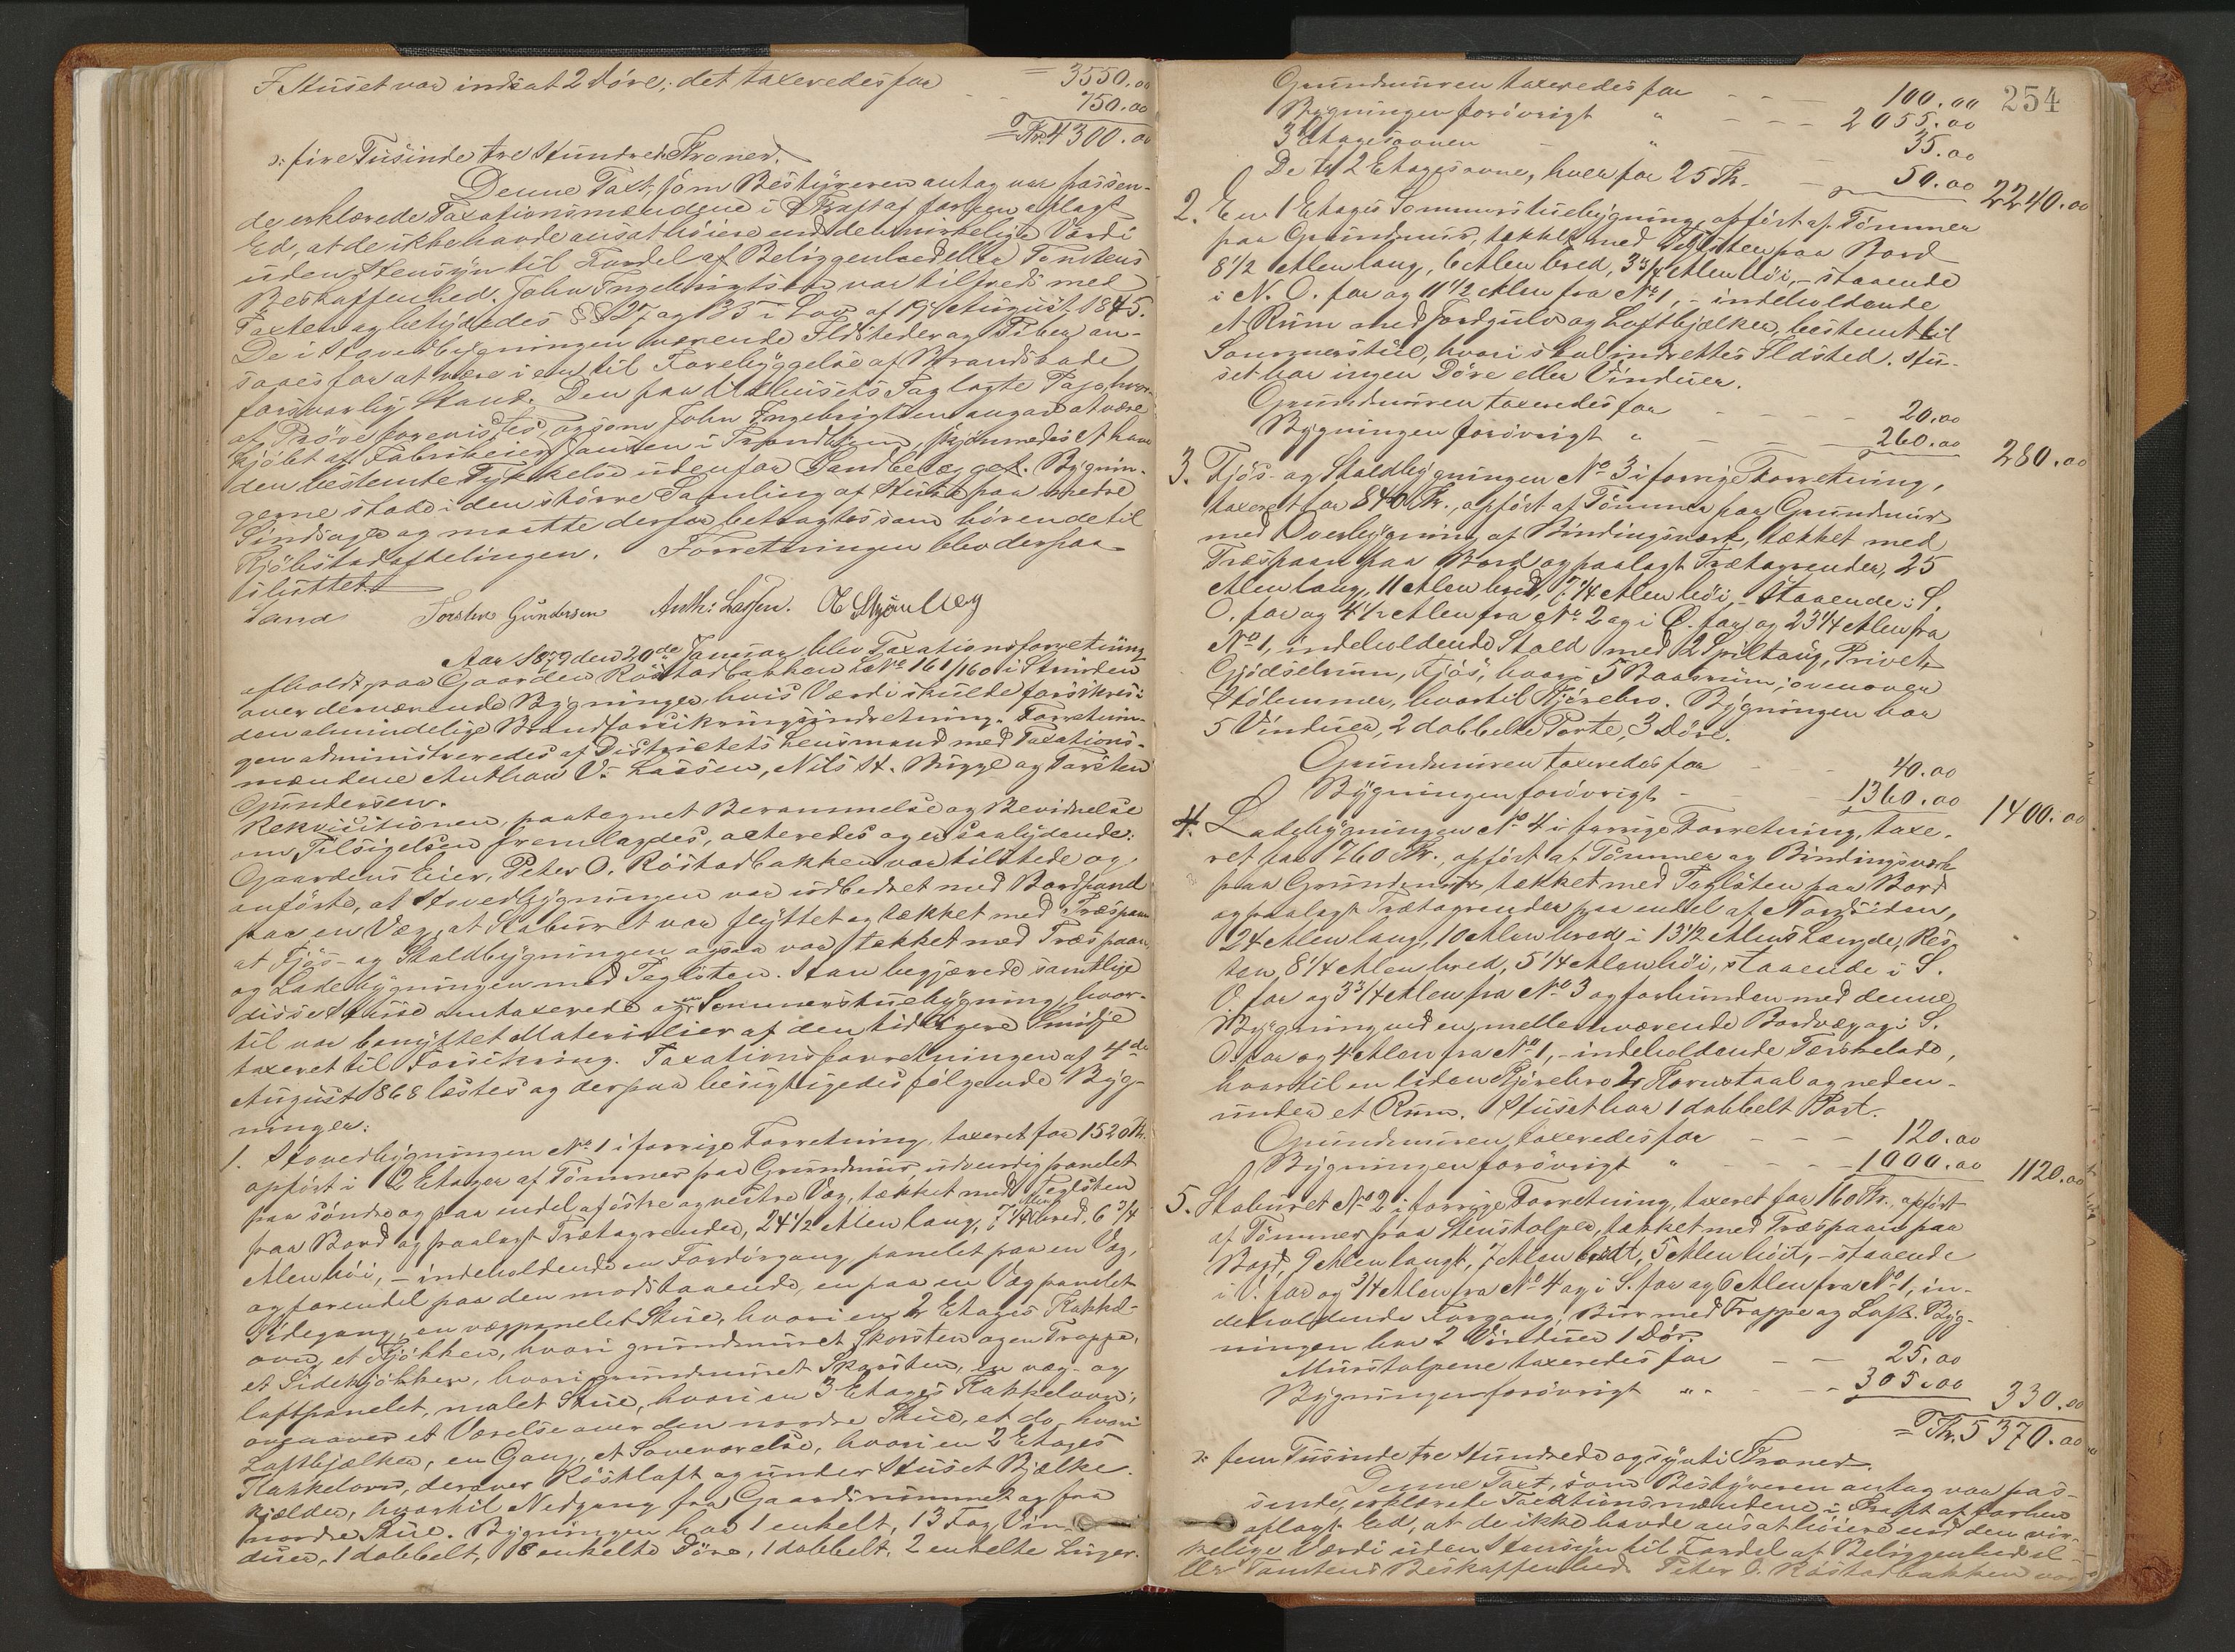 I Huset var indsat 2 Döre; det taxeredes for
= 3550.00
750.00
= Kr. 4300.00
ɔ: fire Tusinde tre Hundrede Kroner.
Denne Taxt, som Bestyreren antog var passen-
de erklærede Taxationsmændene i Kraft af forhen aflagt
Ed, at de ikke havde ansat höiere end den virkelige Værdi
uden Hensyn til Fordel af Beliggenhed eller Tomtens
Beskaffenhed. John Engebrigtsen var tilfreds med
Taxten og betydedes §§ 27 og 35 i Lov af 19de August 1845.
De i Hovedbygningen værende Ildsteder og Piber an-
saaes for at være i en til Forebyggelse af Brandskade
forsvarlig Stand. Den paa Udhusets Tag lagte Pap, hvor-
af Pröve forevistes, og som John Engebrigtsen angav at være
kjöbt af Fabrikeier Jansen i Trondhjem, skjönnedes at have
den bestemte Tykkelse udenfor Sandbelægget. Bygnin-
gerne staar i den större Samling af Huse paa nedre
Sindsager og maatte derfor betragtes som hörende til
Kjöbstadafdelingen. Forretningen blev derpaa
sluttet.
Sand Torsten Gundersen Anth: Lassen.
Aar 1879 den 20de Januar blev Taxationsforretning
afholdt paa Gaarden Röstadbakken LNo 161/160 i Strinden
over derværende Bygninger, hvis Værdi skulde forsikres i
den almindelige Brandforsikringsindretning. Forretnin-
gen administreredes af Districtets Lensmand med Taxations-
mændene Anthon V. Lassen, Nils H. Bügge og Torsten
Gundersen.
Rekvisitionen, paategnet Berammelse og Bevidnelse
om Tilsigelsen fremlagdes, acteredes og er saalydende:
Gaardens Eier, Peter O. Röstadbakken var tilstede og
anförte, at Hovedbygningen var udbedret med Bordpanel
paa en Væg, at Staburet var flyttet og tækket med Træspaan
at Fjös- og Staldbygningen ogsaa var tækket med Træspaan,
og Ladebygningen med Taglsten. Han begjærede samtlige
disse Huse omtaxerede og en Sommerstuebygning, hvor-
til var benyttet Materialier af den tidligere Smidje
taxeret til Forsikring. Taxationsforretningen af 4de
August 1868 læstes og derpaa besigtigedes fölgende Byg-
ninger:
1. Hovedbygningen No 1 i forrige Forretning, taxeret for 1520 Kr.
opfört i 2 Etager af Tömmer paa Grundmur, udvendig panelet
paa söndre og paa endel af östre og vestre Væg, tækket med Teglsten
paa Bord og paalagt Trætagrender, 24 1/2 Alen lang, 7 1/4 Alen bred, 6 3/4
Alen höi, – indeholdende en Fordörgang, panelet paa en Væg,
og forendel paa den modstaaende, en paa en Væg panelet
Sidegang, en vægpanelet Stue, hvori en 2 Etages Kakkel-
ovn, et Kjökken, hvori grundmuret Skorsten og en Trappe,
et Sidekjökken, hvori grundmuret Skorsten, en væg- og
loftpanelet, malet Stue, hvori en 3 Etages Kakkelovn;
ovenover et Værelse over den nordre Stue, et do hvori
Loftbjælker, en Gang, et Soveværelse, hvori en 2 Etages
Kakkelovn, derover Röstloft og under Huset Bjælke-
kjælder, hvortil Nedgang fra Gaardsrummet og fra
nordre Stue. Bygningen har 1 enkelt, 13 Fag Vin-
duer, 1 dobbelt, 8 enkelte Döre, 1 dobbelt, 2 enkelte Luger.
254
Grundmuren taxeredes for – – 100.00
Bygningen forövrigt " – – – 2055.00
3 Etagesovnen – " – 35.00
De to 2 Etagesovne, hver for 25 Kr. – 50.00 2240.00
2. En 1 Etages Sommerstuebygning, opfört af Tömmer
paa Grundmur, tækket med Teglsten paa Bord
8 1/2 Alen lang, 6 Alen bred, 3 3/4 Alen höi, – staaende
i N. O. for og 11 1/2 Alen fra No 1, – indeholdende
et Rum med Jordgulv og Loftbjælker, bestemt til
Sommerstue, hvori skal indrettes Ildsted. Hu-
set har ingen Döre eller Vinduer.
Grundmuren taxeredes for – – – – 20.00
Bygningen forövrigt " – – – 260.00 280.00
3. Fjös- og Staldbygningen No 3 i forrige Forretning,
taxeret for 840 Kr., opfört af Tömmer paa Grundmur
med Overbygning af Bindingsværk, tækket med
Træspaan paa Bord og paalagt Trætagrender, 25
Alen lang, 11 Alen bred, 7 1/4 Alen höi, – staaende i S.
O. for og 4 1/2 Alen fra No 2 og i O. for og 23 1/4 Alen fra
No 1, indeholdende Stald med 2 Spiltaug, Privet,
Gjödselrum, Fjös, hvori 5 Baasrum; ovenover
Hölemmer, hvortil Kjörebro. Bygningen har
5 Vinduer, 2 dobbelte Porte, 3 Döre.
Grundmuren taxeredes for – – 40.00
Bygningen forövrigt – 1360.00 1400.00
4. Ladebygningen No 4 i forrige Forretning, taxe-
ret for 760 Kr., opfört af Tömmer og Bindingsværk
paa Grundmur, tækket med Taglsten paa Bord
og paalagt Trætagrender paa endel af Nordsiden,
24 Alen lang, 10 Alen bred i 13 1/2 Alens Længde, Res-
ten 8 1/4 Alen bred, 5 1/4 Alen höi, staaende i S.
V. for og 3 3/4 Alen fra No 3 og forbunden med denne
Bygning ved en mellemværende Bordvæg og i S.
O. for og 4 Alen fra No 1, – indeholdende Tærskelade,
hvortil en liden Kjörebro, 2 Kornstaal og neden-
under et Rum. Huset har 1 dobbelt Port.
Grundmuren taxeredes for – – – 120.00
Bygningen forövrigt " – – – – 1000.00 1120.00
5. Staburet No 2 i forrige Forretning, taxeret for 160 Kr., opfört
af Tömmer paa Stenstolper, tækket med Træspaan paa
Bord, 9 Alen langt, 7 Alen bredt, 5 Alen höit, – staaende
i V. for og 3/4 Alen fra No 4 og i S. for og 6 Alen fra No 1, in-
deholdende Forgang, Bur med Trappe og Loft. Byg-
ningen har 2 Vinduer 1 Dör.
Murstolperne taxeredes for – – 25.00
Bygningen forövrigt " – – – 305.00 330.00
= Kr. 5370.00
ɔ: fem Tusinde tre Hundrede og sytti Kroner.
Denne Taxt, som Bestyreren antog var pas-
sende, erklærede Taxationsmændene i Kraft af forhen
aflagt Ed, at de ikke havde ansat höiere end den vir-
kelige Værdi uden Hensyn til Fordel af Beliggenhed el-
ler Tomtens Beskaffenhed. Peter O. Röstadbakken var